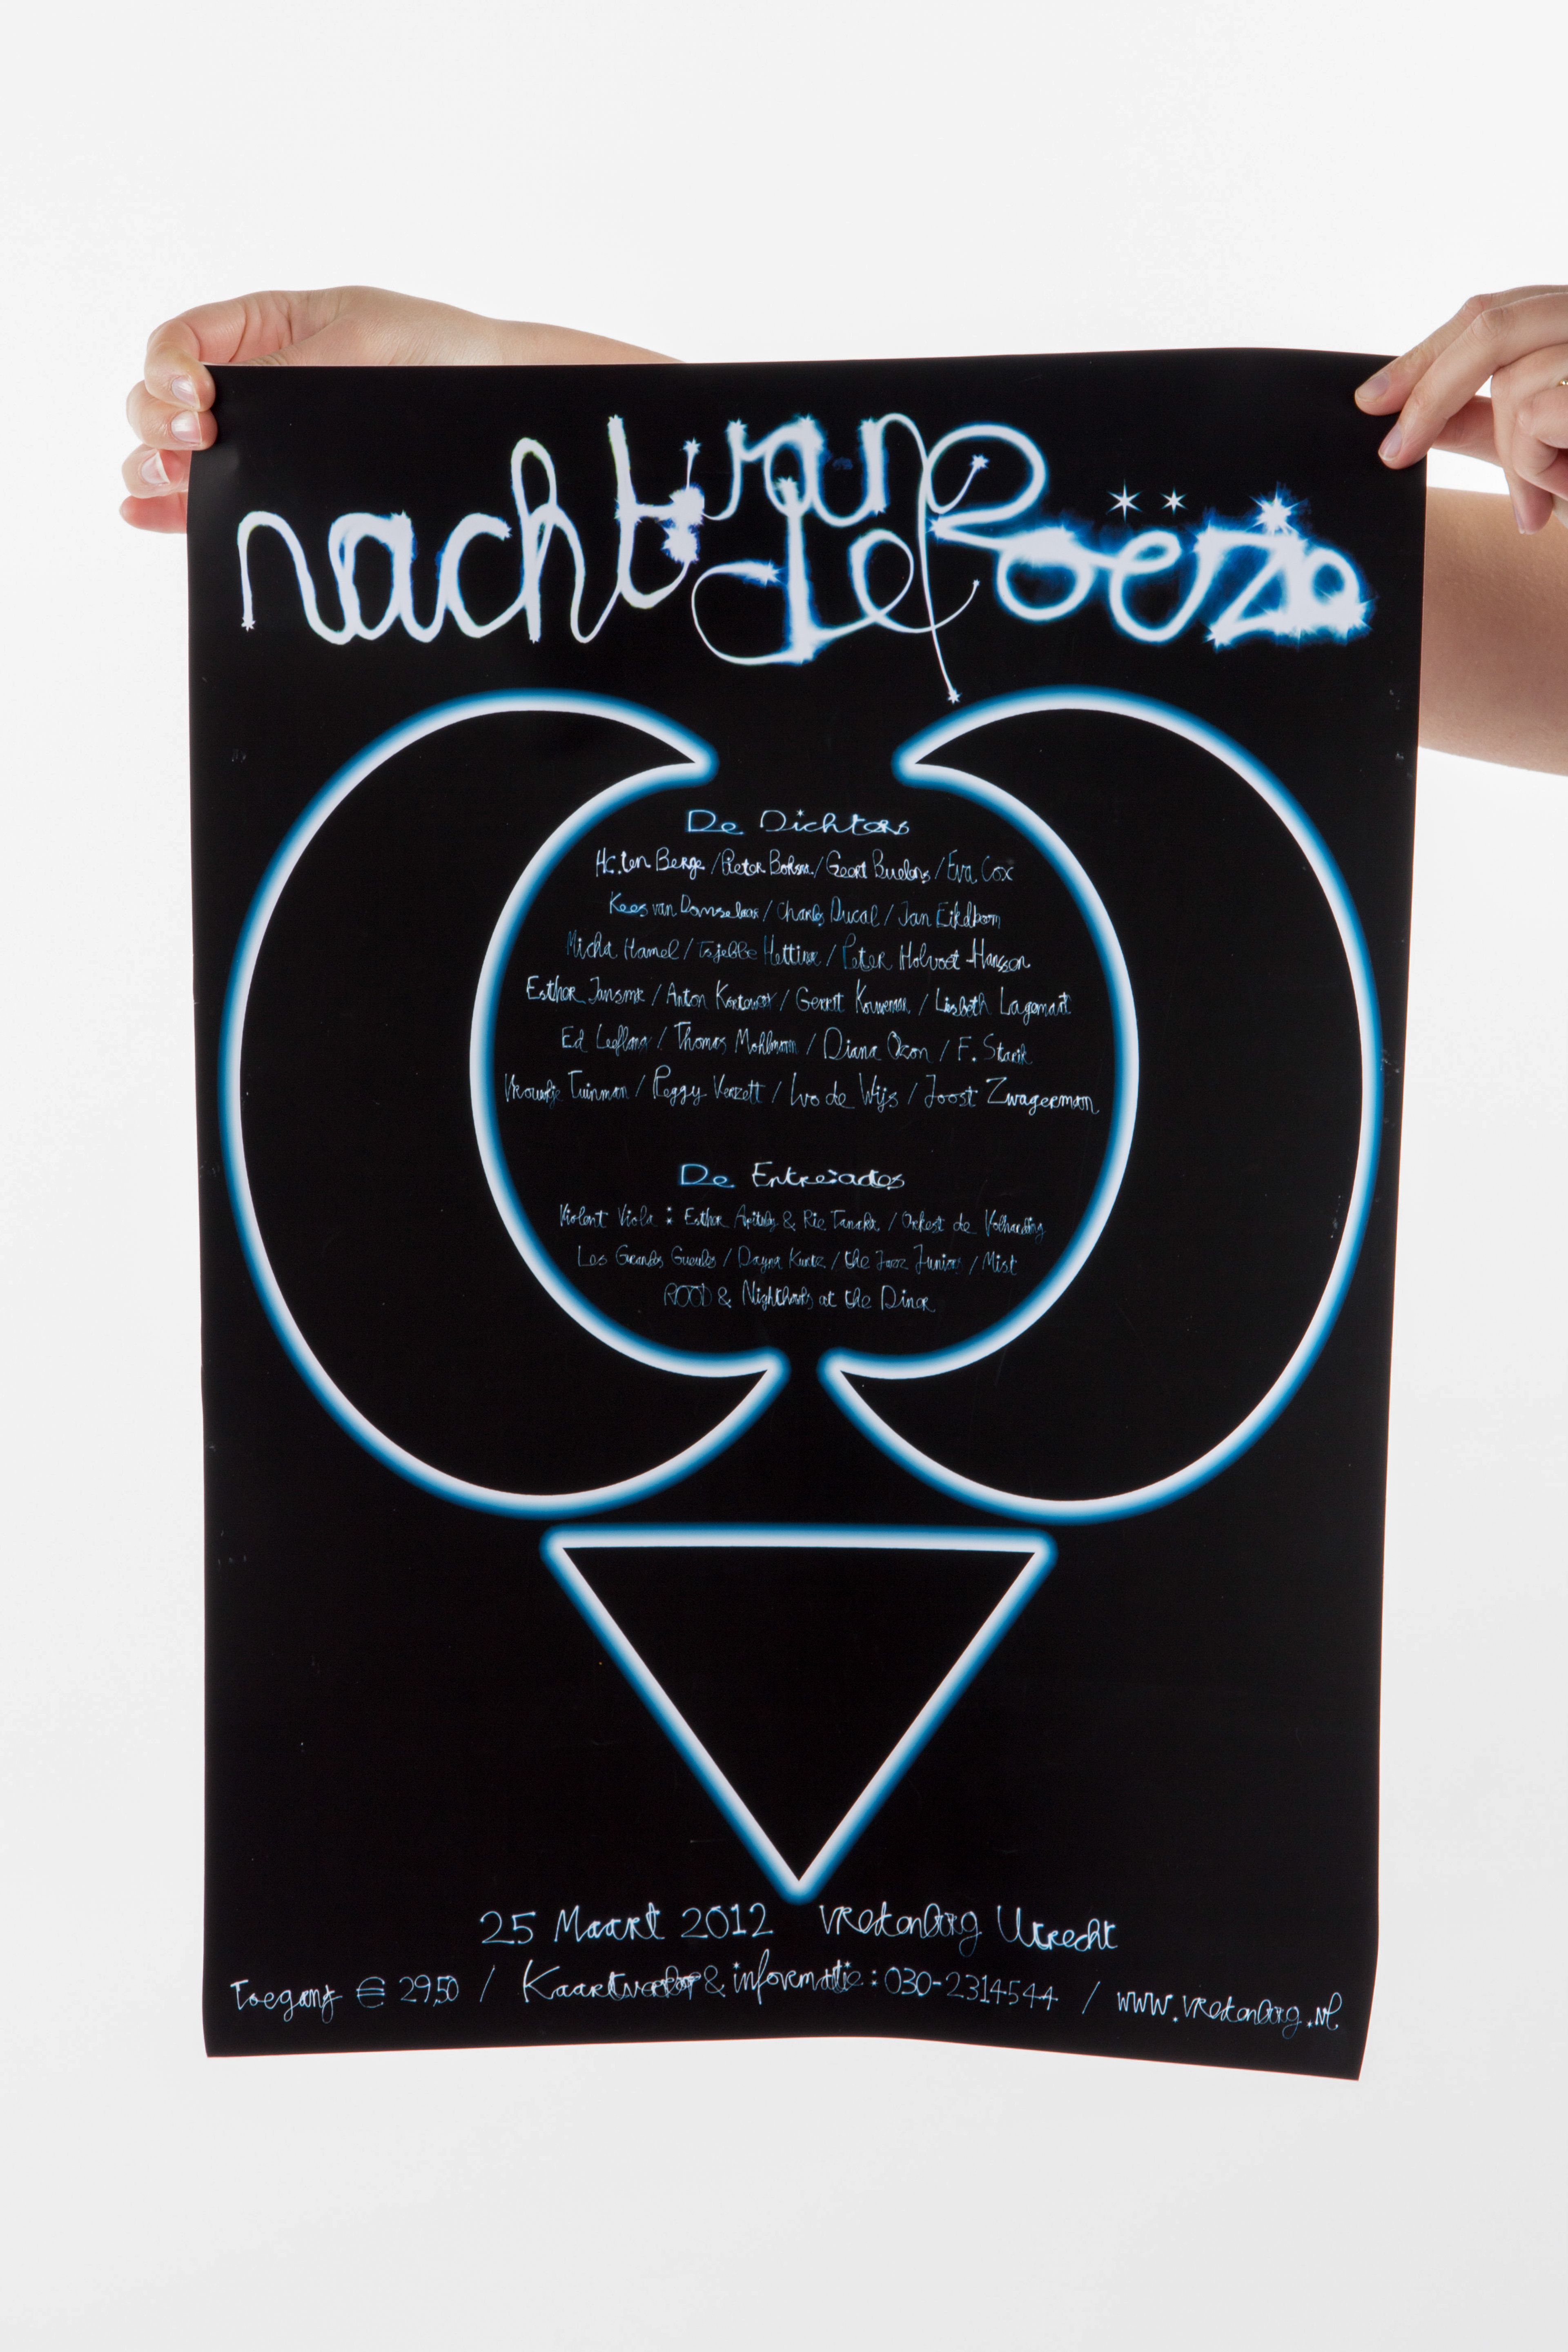 nacht van de Poëzie
De Dichters
H.C. ten Berge / Pieter Boskma / Geert Buelens / Eva Cox
Kees van Domselaar / Charles Ducal / Jan Eijkelboom
Micha Hamel / Tsjebbe Hettinga / Peter Holvoet-Hanssen
Esther Jansma / Anton Korteweg / Gerrit Kouwenaar / Liesbeth Lagemaat
Ed Leeflang / Thomas Möhlmann / Diana Ozon / F. Starik
Vrouwkje Tuinman / Peggy Verzett / Ivo de Wijs / Joost Zwagerman
De Entre-actes
Violent Viola : Esther Apituley & Rie Tanaka / Orkest de Volharding
Les Grandes Gueules / Dayna Kurtz / the Jazz Juniors / Mist
ROOD & Nighthawks at the Diner
25 Maart 2012 Vredenburg Utrecht
Toegang € 29,50 / Kaartverkoop & informatie : 030-2314544 / www.vredenburg.nl